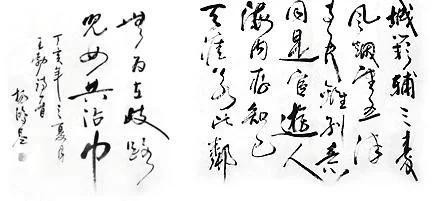 城闕輔三秦
風煙望五津
与君離別意
同是宦遊人
海内存知己
天涯若比鄰
無為在歧路
兒女共沾巾
丁亥年之夏月
王勃詩一首